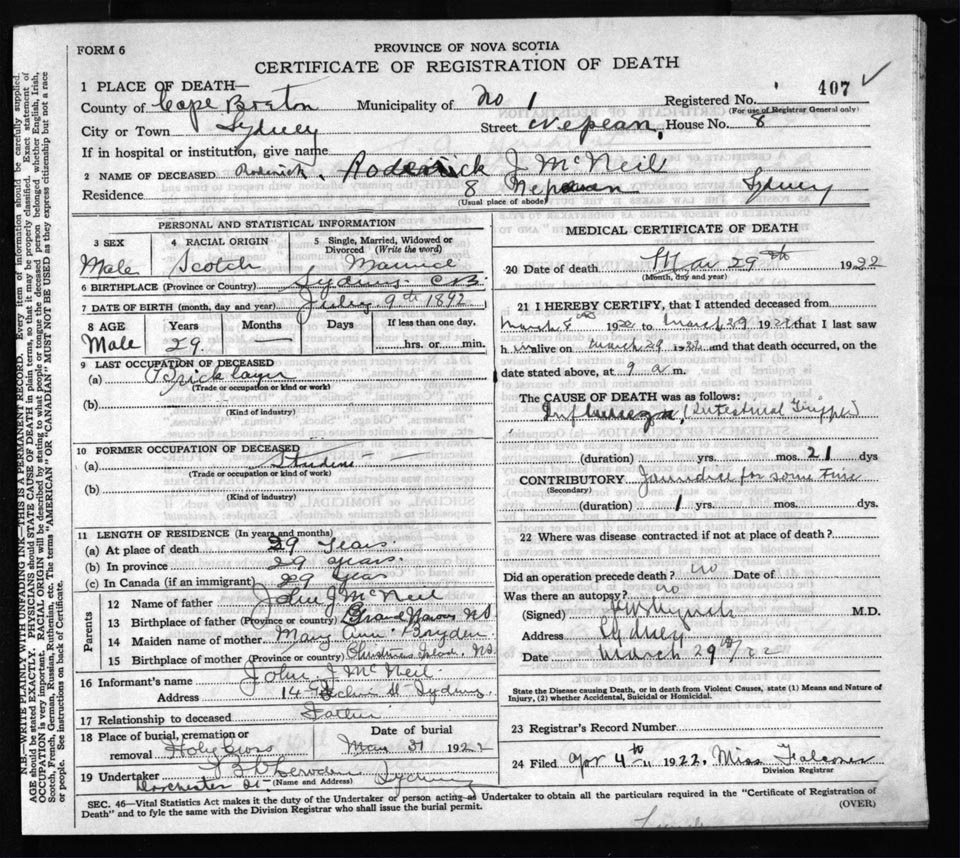 FORM 6
PROVINCE OF NOVA SCOTIA
CERTIFICATE OF REGISTRATION OF DEATH
1 PLACE OF DEATH—
407 ✓
County of Cape Breton Municipality of No 1 Registered No.
(For use of Registrar General only)
City or Town Sydney Street Nepean, House No. 8
If in hospital or institution, give name
2 NAME OF DECEASED Roderick Roderick J McNeil
Residence 8 Nepean Sydney
(Usual place of abode)
PERSONAL AND STATISTICAL INFORMATION
3 SEX 4 RACIAL ORIGIN 5 Single, Married, Widowed or Divorced (Write the word)
Male Scotch Married
6 BIRTHPLACE (Province or Country) Sydney CB
7 DATE OF BIRTH (month, day and year) July 9th 1892
8 AGE Years Months Days If less than one day,
Male 29 — hrs. or min.
9 LAST OCCUPATION OF DECEASED
(a) Bricklayer
(Trade or occupation or kind or work)
(b)
(Kind of industry)
10 FORMER OCCUPATION OF DECEASED
(a) Student
(Trade or occupation or kind of work)
(b)
(Kind of industry)
11 LENGTH OF RESIDENCE (In years and months)
(a) At place of death 29 Years
(b) In province 29 years
(c) In Canada (if an immigrant) 29 Year
Parents
12 Name of father John J McNeil
13 Birthplace of father (Province or country) Grand Narrows NS
14 Maiden name of mother Mary Ann Bryden
15 Birthplace of mother (Province or Country) Christmas Island NS
16 Informant's name John J McNeil
Address St Sydney
17 Relationship to deceased Father
18 Place of burial, cremation or removal Holy Cross Date of burial Mar 31 1922
19 Undertaker Sydney
Dorchester St (Name and Address)
MEDICAL CERTIFICATE OF DEATH
20 Date of death Mar 29th 1922
(Month, day and year)
21 I HEREBY CERTIFY, that I attended deceased from
March 8 1922 to March 29 1922 that I last saw
h im alive on March 29 1922 and that death occurred, on the
date stated above, at 9 a m.
The CAUSE OF DEATH was as follows:
Influenza (Intestinal Grippe)
(duration) yrs. mos. 21 dys
CONTRIBUTORY Jaundice for some Time
(Secondary)
(duration) 1 yrs. mos. dys.
22 Where was disease contracted if not at place of death?
Did an operation precede death? no Date of
Was there an autopsy? no
(Signed) Lynch M.D.
Address Sydney
Date March 29th/22
State the Disease causing Death, or in death from Violent Causes, state (1) Means and Nature of Injury, (2) whether Accidental, Suicidal or Homicidal.
23 Registrar's Record Number
24 Filed Apr 4th 1922, Miss Falconer
Division Registrar
SEC. 46—Vital Statistics Act makes it the duty of the Undertaker or person acting as Undertaker to obtain all the particulars required in the "Certificate of Registration of
Death" and to fyle the same with the Division Registrar who shall issue the burial permit. (OVER)
N.B.—WRITE PLAINLY WITH UNFADING INK—THIS IS A PERMANENT RECORD. Every item of information should be carefully supplied.
AGE should be stated EXACTLY. PHYSICIANS should STATE CAUSE OF DEATH in plain terms, so that it may be properly classified. Exact statement of
OCCUPATION is very important. RACIAL ORIGIN will be described by stating to what people or tongue the deceased person belonged whether English, Irish,
Scotch, French, German, Russian, Ruthenian, etc. The terms "AMERICAN" OR "CANADIAN" MUST NOT BE USED as they express citizenship but not a race
or people. See instructions on back of Certificate.